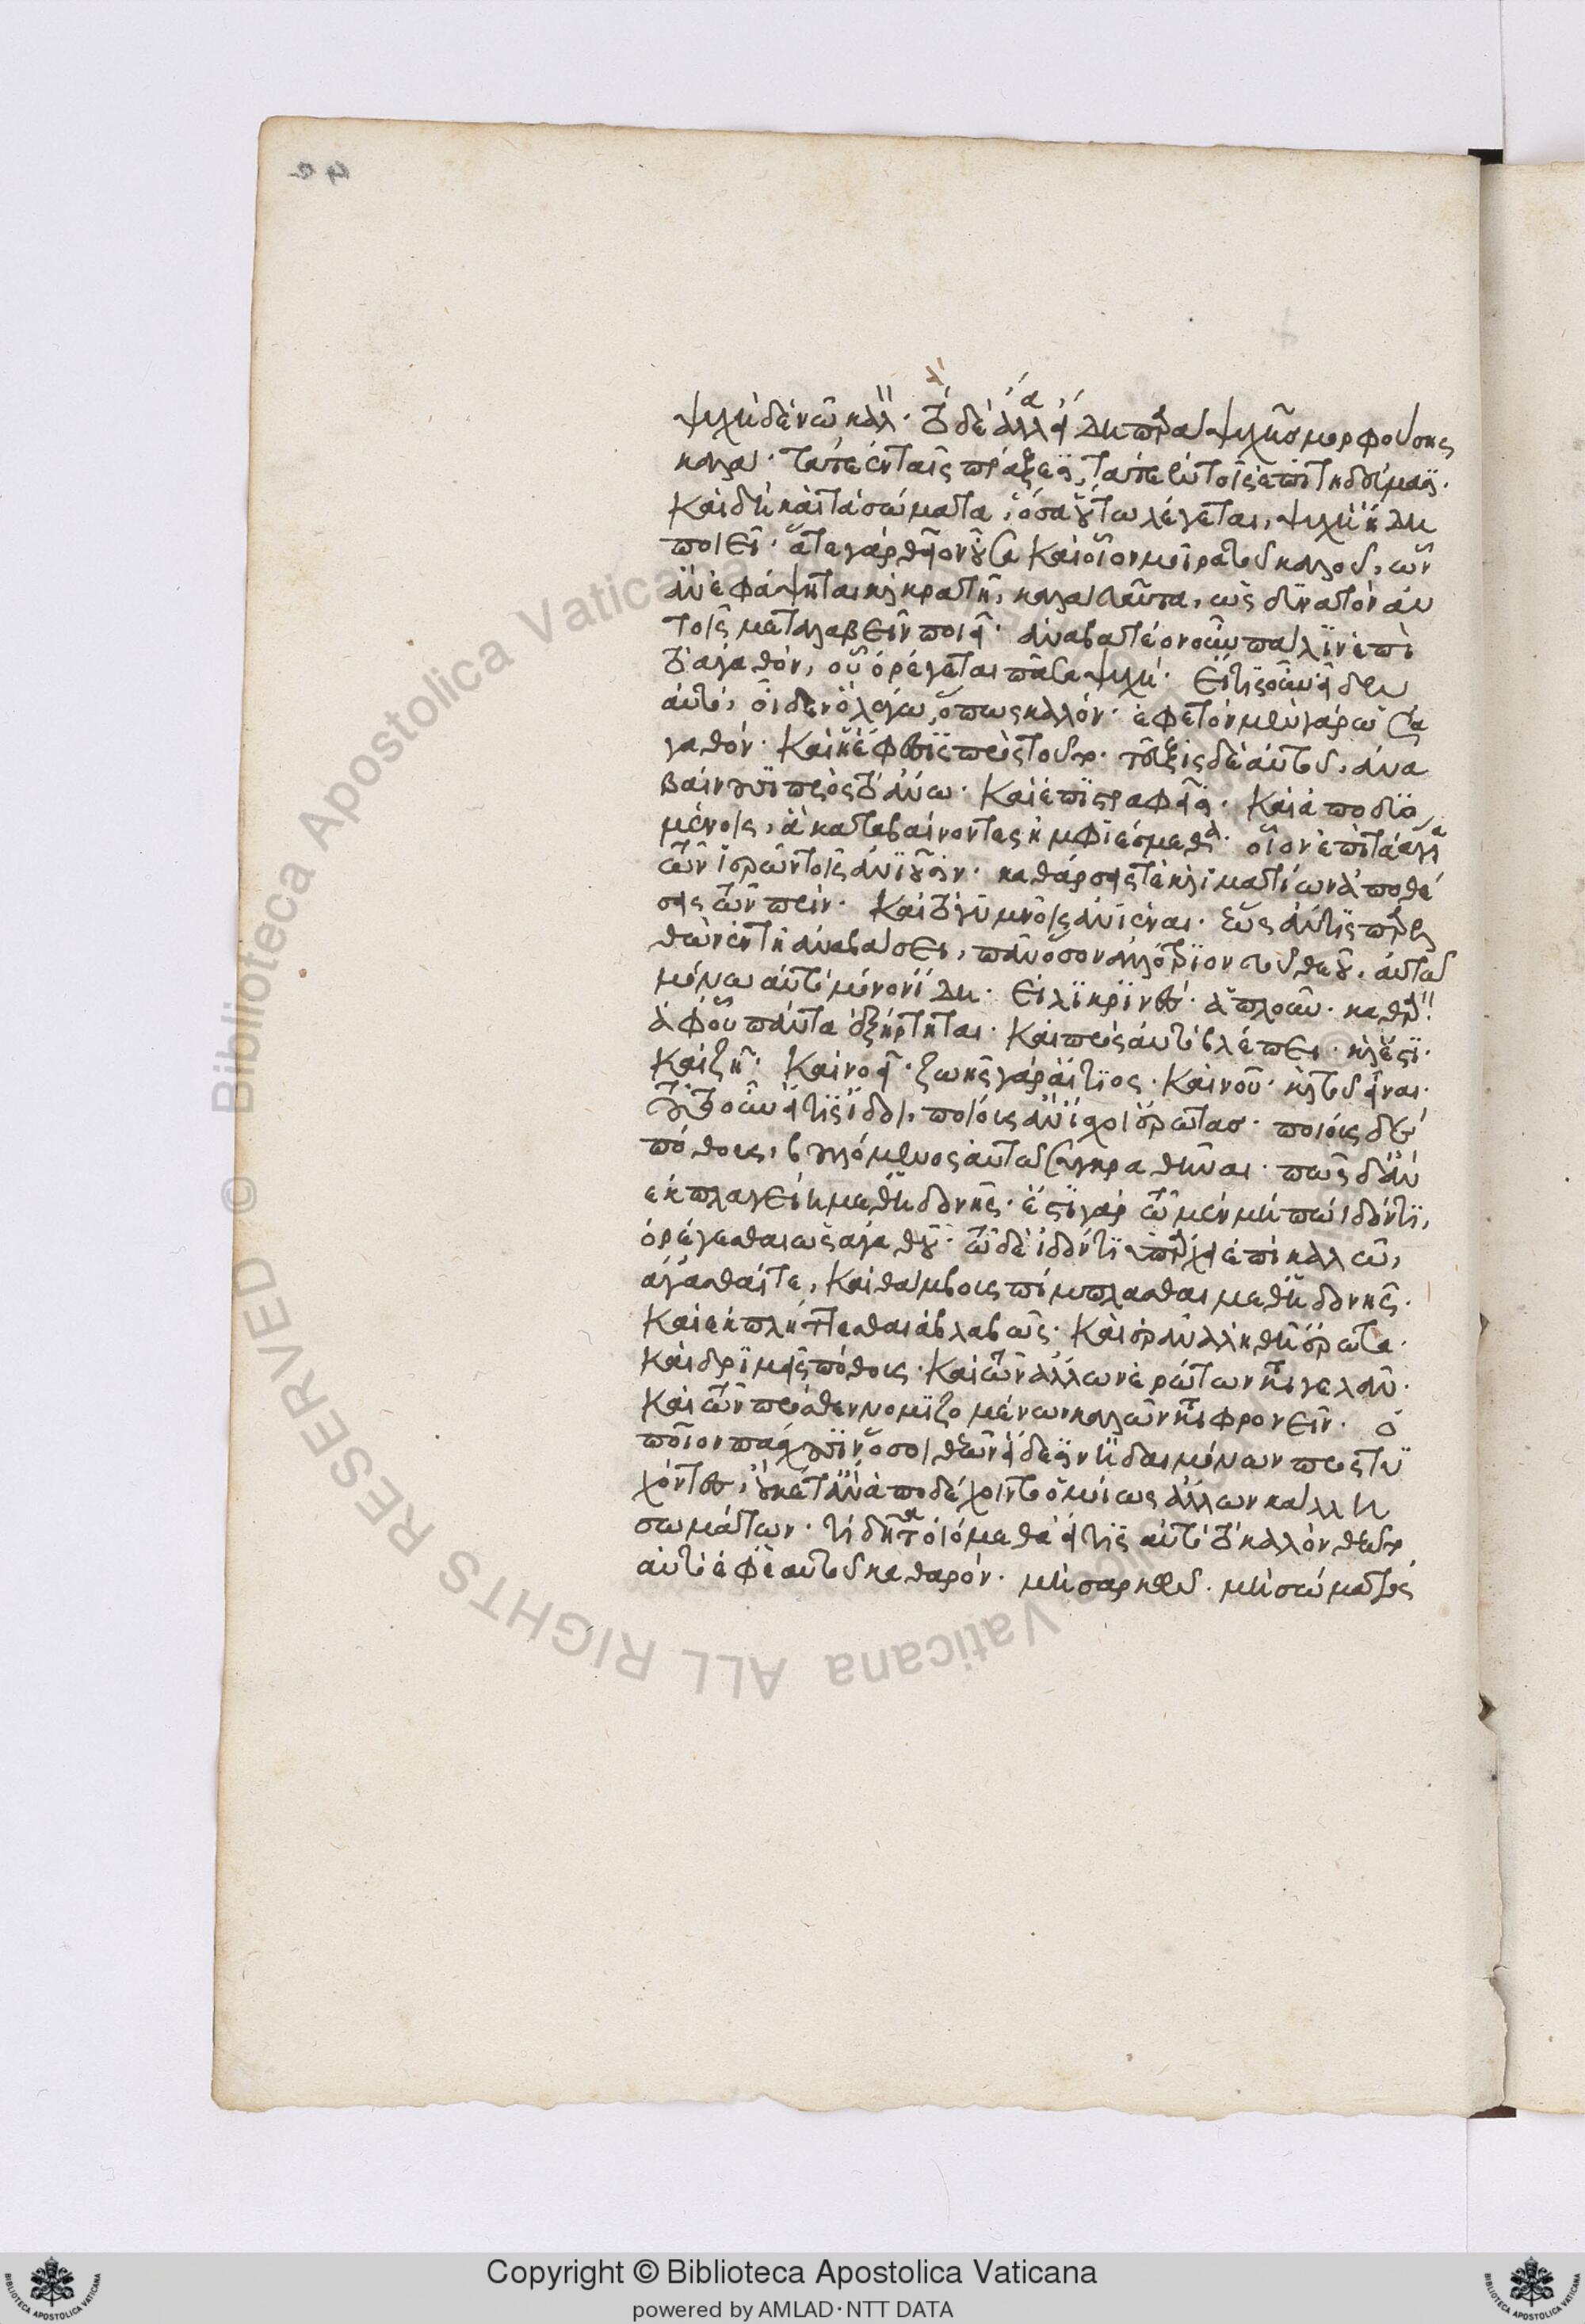 ψυχὴ δὲ νῷ καλόν· τὸ δὲ ἄλλα ἤδη παρὰ ψυχῆς μορφούσης
καλά· τά τε ἐν ταῖς πράξεσι, τά τε ἐν τοῖς ἐπιτηδεύμασι·
καὶ δὴ καὶ τὰ σώματα, ὅσα οὕτω λέγεται, ψυχὴ ἤδη
ποιεῖ· ἅτε γὰρ θεῖον οὖσα καὶ οἷον μοῖρα τοῦ καλοῦ, ὧν
ἂν ἐφάψηται καὶ κρατῇ, καλὰ ταῦτα, ὡς δυνατὸν αὐ
τοῖς μεταλαβεῖν ποιεῖ· ἀναβατέον οὖν πάλιν ἐπὶ
τὸ ἀγαθόν, οὗ ὀρέγεται πᾶσα ψυχή· εἴ τις οὖν εἶδεν
αὐτό, οἶδεν ὃ λέγω, ὅπως καλόν· ἐφετὸν μὲν γὰρ ὡς ἀ
γαθόν· καὶ ἡ ἔφεσις πρὸς τοῦτο· τεῦξις δὲ αὐτοῦ, ἀνα
βαίνουσι πρὸς τὸ ἄνω· καὶ ἐπιστραφεῖσι· καὶ ἀποδυο
μένοις, ἃ καταβαίνοντες ἠμφιέσμεθα· οἷον ἐπὶ τὰ ἅγια
τῶν ἱερῶν τοῖς ἀνιοῦσιν· καθάρσεις τε καὶ ἱματίων ἀποθέ
σεις τῶν πρίν· καὶ τὸ γυμνοῖς ἀνιέναι· ἕως ἄν τις παρελ
θὼν ἐν τῇ ἀναβάσει, πᾶν ὅσον ἀλλότριον τοῦ θεοῦ, αὐτῷ
μόνῳ αὐτὸ μόνον ἴδῃ· εἰλικρινές· ἁπλοῦν· καθαρόν·
ἀφ' οὗ πάντα ἐξήρτηται· καὶ πρὸς αὐτὸ βλέπει· καὶ ἔστι·
καὶ ζῇ· καὶ νοεῖ· ζωῆς γὰρ αἴτιος· καὶ νοῦ· καὶ τοῦ εἶναι·
τοῦτο οὖν εἴ τις ἴδοι, ποίους ἂν ἴσχοι ἔρωτας· ποίους δὲ
πόθους, βουλόμενος αὐτῷ συγκραθῆναι· πῶς δ' ἂν
ἐκπλαγείη μεθ' ἡδονῆς· ἔστι γὰρ τῷ μὲν μήπω ἰδόντι,
ὀρέγεσθαι ὡς ἀγαθοῦ· τῷ δὲ ἰδόντι ὑπάρχει ἐπὶ καλῷ,
ἄγασθαί τε, καὶ θάμβους πίμπλασθαι μεθ' ἡδονῆς·
καὶ ἐκπλήττεσθαι ἀβλαβῶς· καὶ ἐρᾶν ἀληθῆ ἔρωτα·
καὶ δριμεῖς πόθους· καὶ τῶν ἄλλων ἐρώτων καταγελᾶν·
καὶ τῶν πρόσθεν νομιζομένων καλῶν καταφρονεῖν· ὁ
ποῖον πάσχουσιν ὅσοι θεῶν εἴδεσιν ἢ δαιμόνων προστυ
χόντες, οὐκέτ' ἂν ἀποδέχοιντο ὁμοίως ἄλλων κάλλη
σωμάτων· τί δῆτα οἰόμεθα εἴ τις αὐτὸ τὸ καλὸν θεῷτο
αὐτὸ ἐφ' ἑαυτοῦ καθαρόν· μὴ σαρκῶν· μὴ σώματος
Copyright © Biblioteca Apostolica Vaticana
powered by AMLAD·NTT DATA